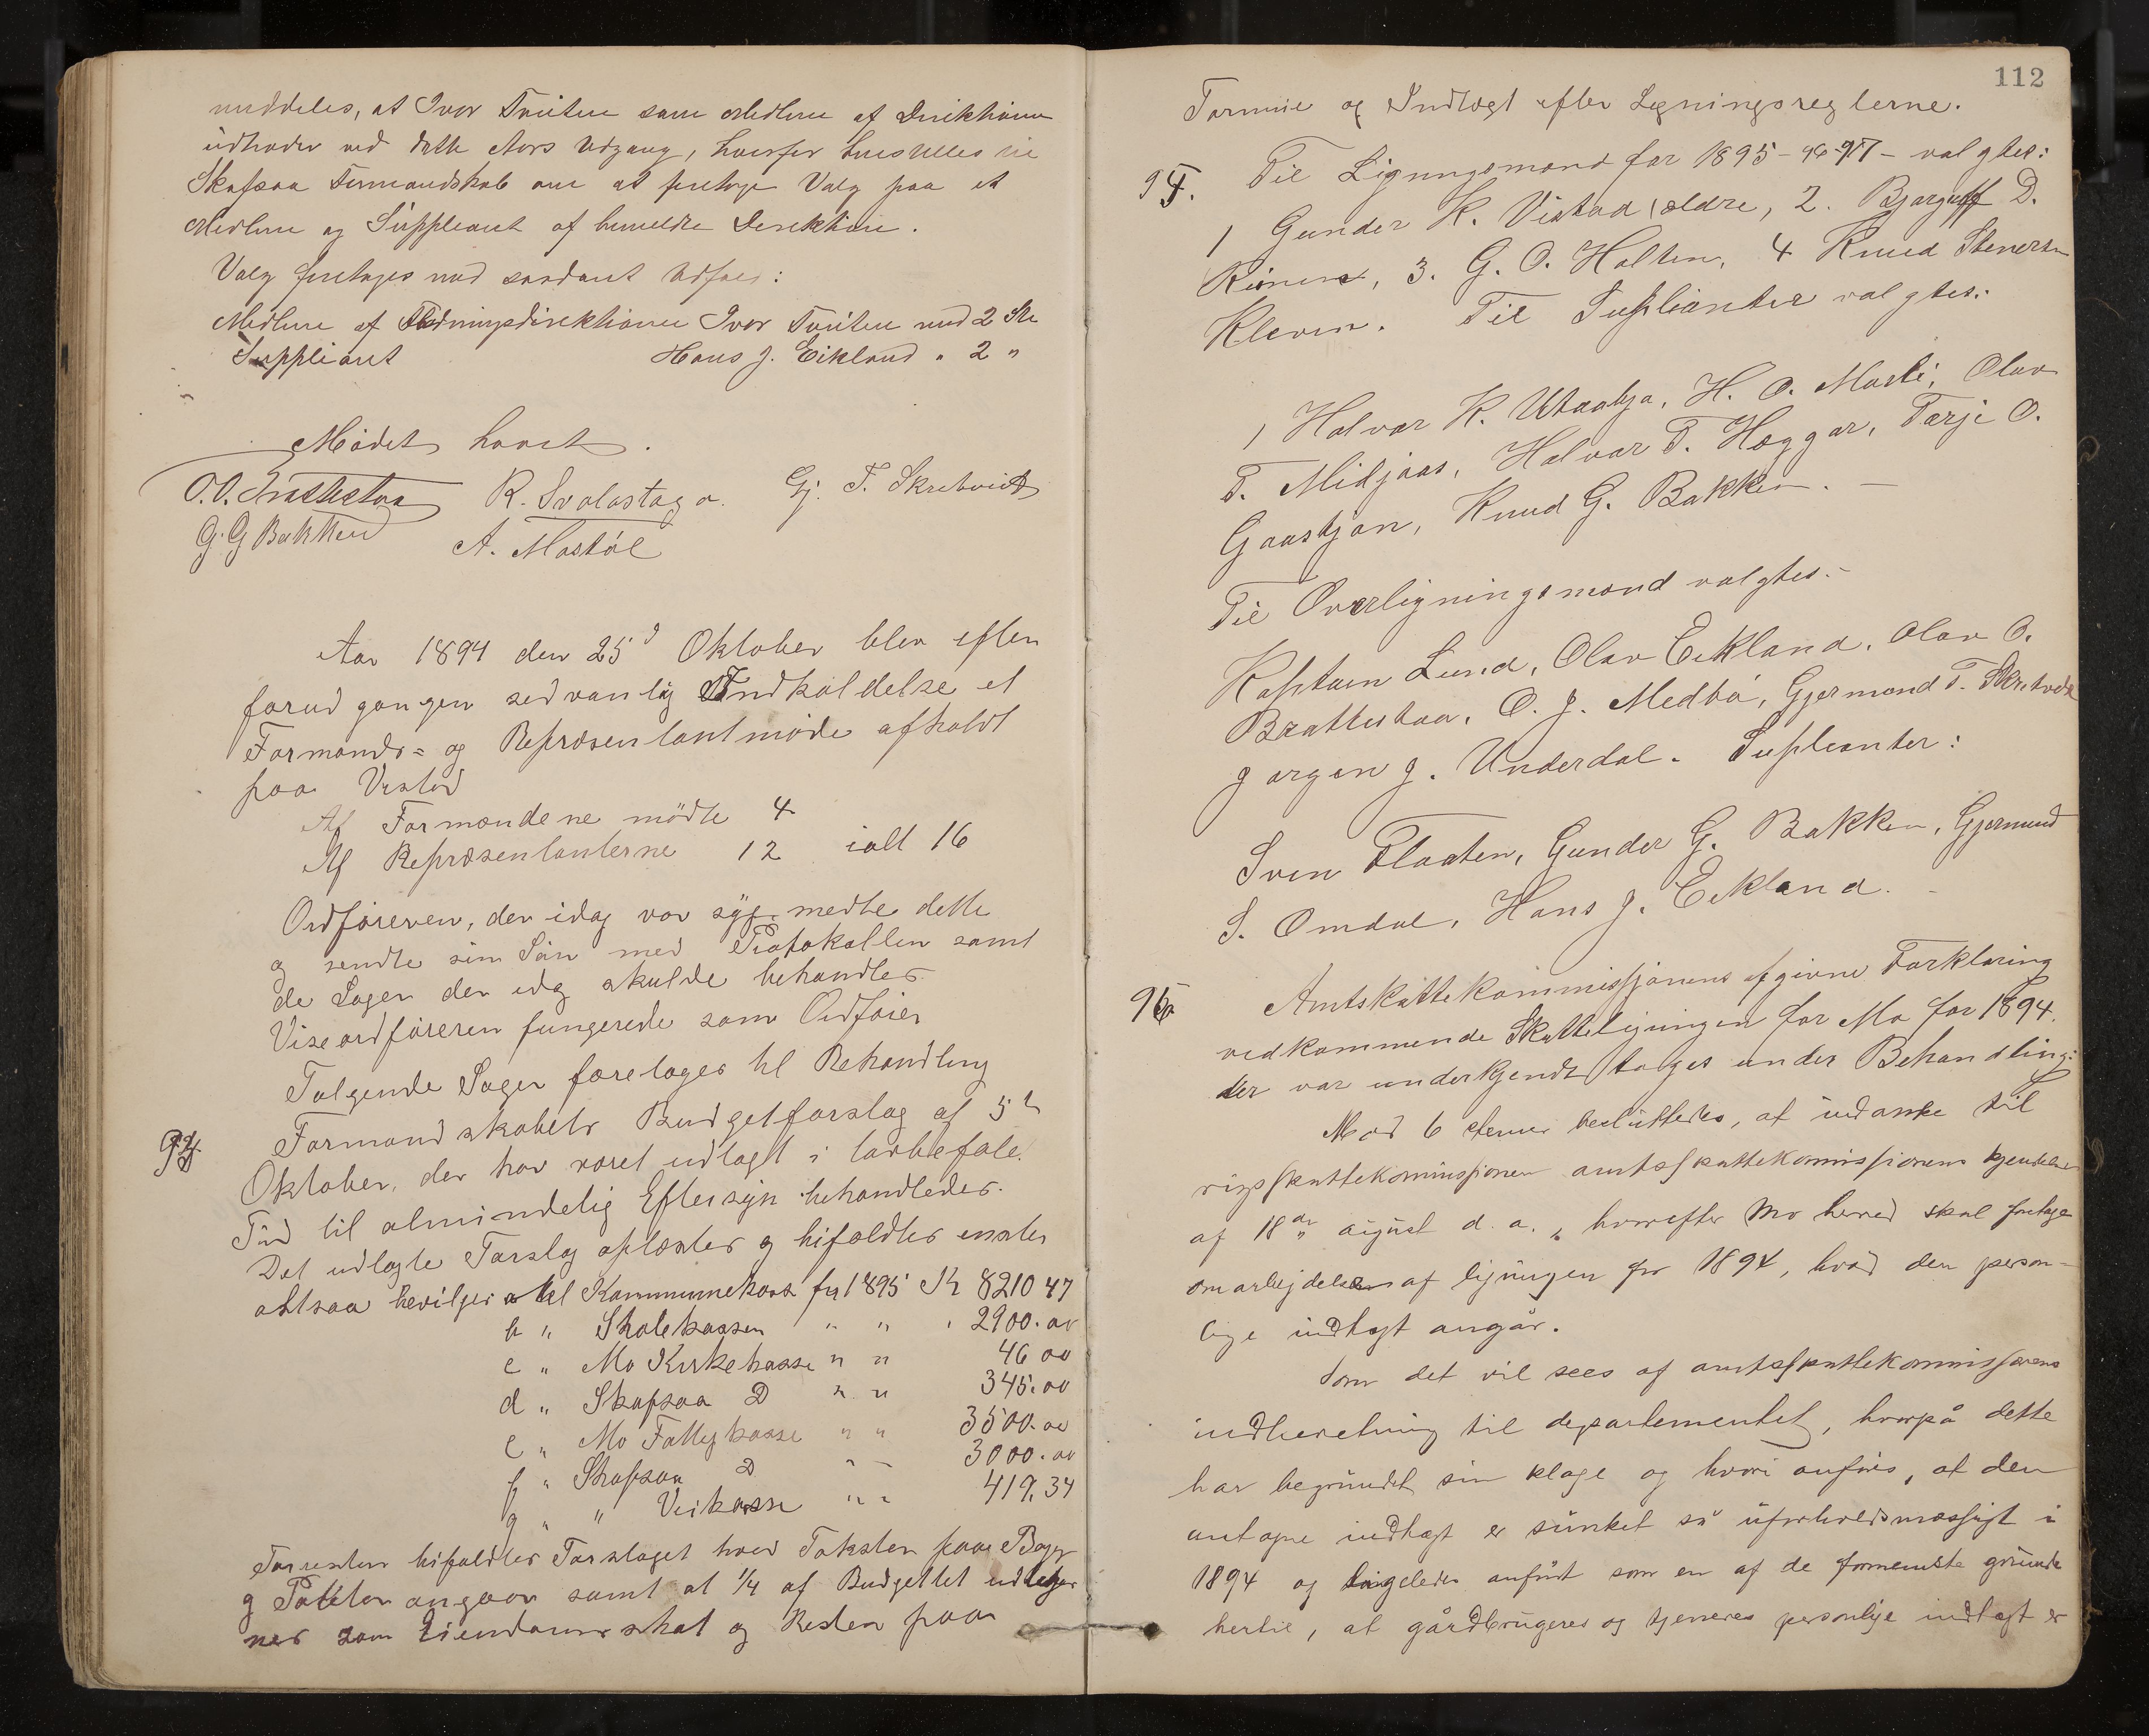 meddeles, at Ivar Tveiten som Medlem af Direktionen
udtræder ved dette Aars Udgang, hvorfor henstilles til
Skafsaa Formandskab om at foretage Valg paa et
Medlem og Suppleant af bemeldte Direktion.
Valg foretoges med saadant Udfald:
Medlem af Direktionen Ivar Tveiten med 2 St
Suppleant Hans J. Eikland " 2 "
Mödet hævet.
O.O. Brattestaa R. Svalastoga. Gj. T. Skretveit
G. G Bakken A. Mostöl
Aar 1894 den 25d Oktober blev efter
forud gangen sedvanlig Indkaldelse et
Formands= og Repræsentantmöde afholdt
paa Vistad
Af Formændene mödte 4
Af Repræsentanterne 12 ialt 16
Ordföreren, der idag var syg, medte dette
og sendte sin Sön med Protokollen samt
de Sager der idag skulde behandles
Viseordföreren fungerede som Ordförer
Fölgende Sager foretoges til Behandling
94 Formandskabets Budgetforslag af 5te
Oktober, der har været udlagt i lovbefale.
Tid til almindelig Eftersyn behandledes.
Det udlagte Forslag oplæstes og bifaldtes enstem
altsaa bevilges a til Kommunekasse for 1895 Kr 8210 47
b " Skolekassen " " " 2900.00
c " Mo Kirkekasse " " 46 00
d " Skafsaa D " " 345.00
e " Mo Fattigkasse " " 3500.00
f " Skafsaa D " " 3000.00
g " " Veikasse " " 419,34
Foresten bifaldtes Forslaget hvad Taksten paa Byg
og Poteter angaar samt at 1/4 af Budgettet udlig
nes som Eiendomsskat og Resten paa
112
Formue og Indtægt efter Ligningsreglerne.
95. Til Ligningsmænd for 1895-96-97- valgtes:
1 Gunder K. Vistad ældre, 2. Bjorgulf D.
3. G. O. Holten, 4 Knud Stenersen
Kleven. Til Suplianter valgtes:
1 Halvor K. Utaabja, H. O. Mosli, Olav
T. Midjaas, Halvor T. Hæggar, Tarje O.
Gaastjøn, Knud G. Bakken. —
Til Overligningsmænd valgtes:
Kaptain Lund, Olav Eikland, Olav O.
Brattestaa, O. J. Medbö, Gjermond T. Skretveit
Jørgen J. Underdal. Supleanter:
Sven Flaaten, Gunder G. Bakken, Gjermund
S. Omdal, Hans J. Eikland.
96 Amtskattekommissjonens afgivne Forklaring
vedkommende Skatteligningen for Mo for 1894.
der var underkjendt toges under Behandling:
Mod 6 stemmer besluttedes, at indanke til
rigsskattekommissionen amtsskattekommissionens kjendelse
af 18de august d. a., hvorefter Mo herred skal foretage
omarbejdelse af ligningen for 1894, hvad den person-
lige indtægt angår.
Som det vil sees af amtsskattekommissionens
indberetning til departementet, hvorpå dette
har begrundet sin klage og hvori anføres, at den
antagne indtægt er sunket så uforholdsmæssigt i
1894 og ligeledes anført som en af de fornemste grunde
hertil, at gårdbrugeres og tjeneres personlige indtægt er